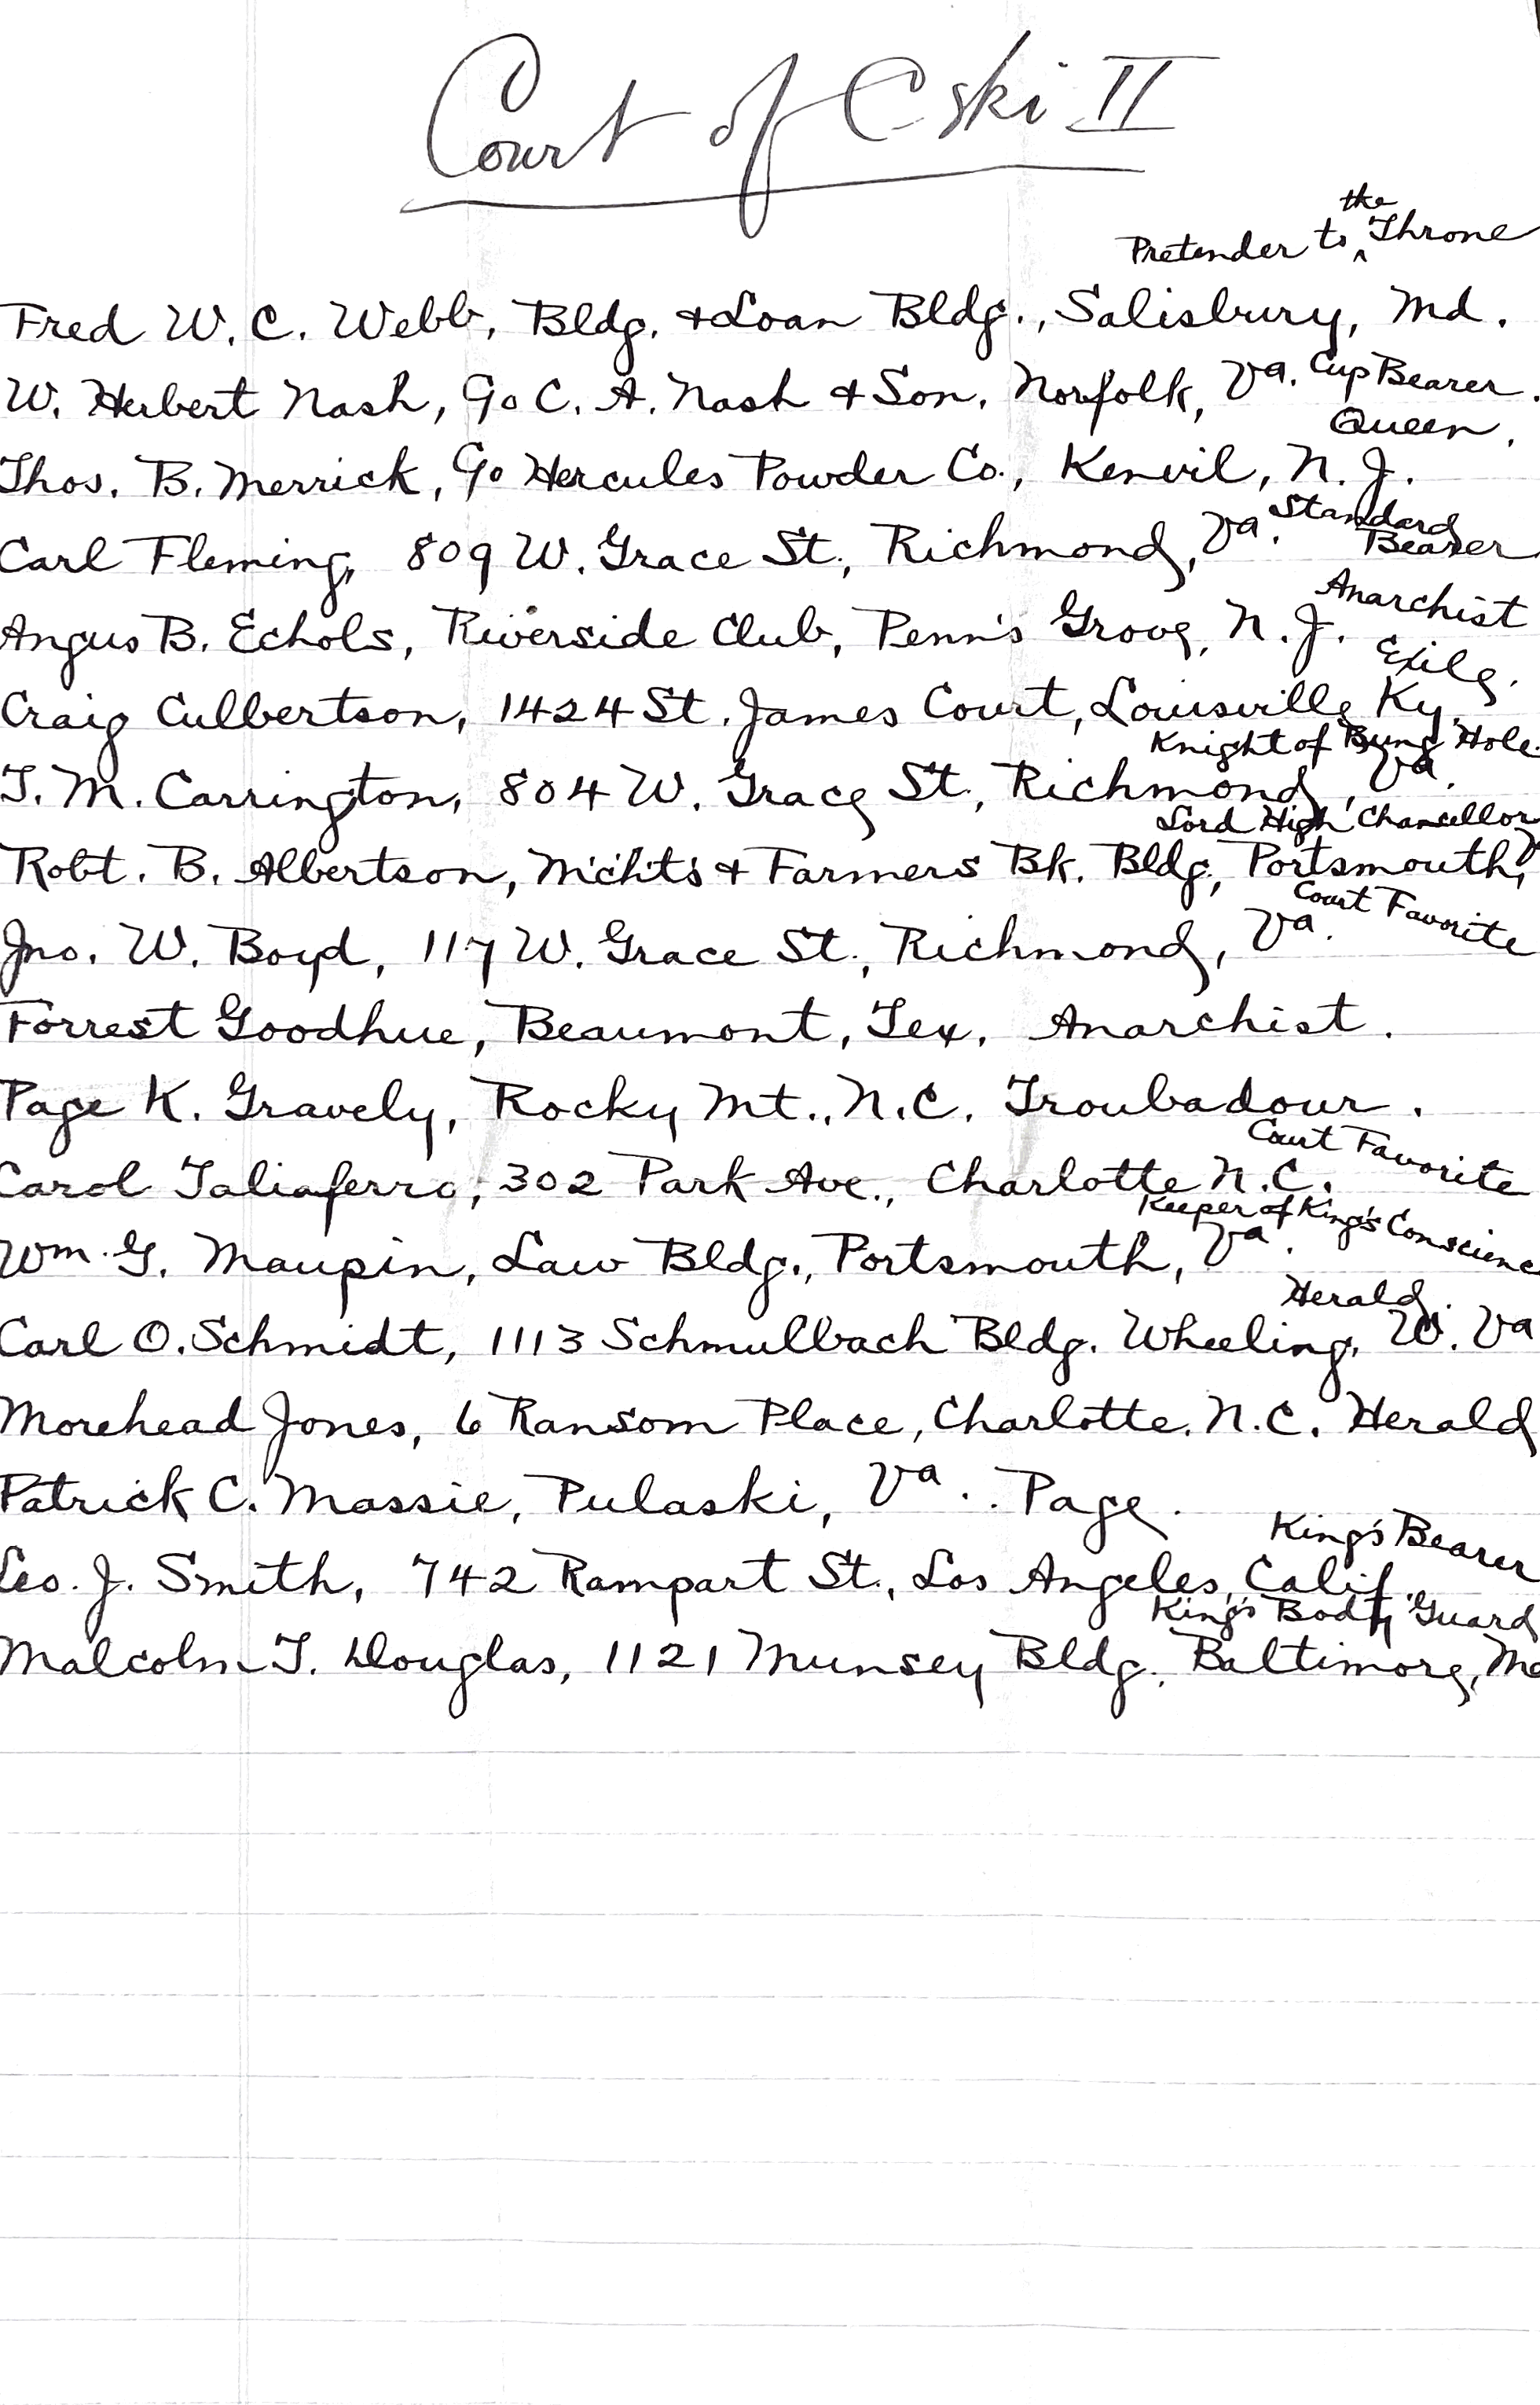 Court of Eski II
Pretender to the Throne
Fred W. C. Webb, Bldg. & Loan Bldg., Salisbury, Md.
W. Herbert Nash, c/o C. A. Nash & Son, Norfolk, Va. Cup Bearer.
Queen.
Thos. B. Merrick, c/o Hercules Powder Co., Kenvil, N. J.
Carl Fleming, 809 W. Grace St., Richmond, Va. Standard Bearer
Anarchist
Angus B. Echols, Riverside Club, Penn's Grove, N. J.
Exile.
Craig Culbertson, 1424 St. James Court, Louisville Ky.
Knight of Bung Hole
T. M. Carrington, 804 W. Grace St., Richmond, Va.
Lord High Chancellor
Robt. B. Albertson, M'ch'ts & Farmers Bk. Bldg., Portsmouth, V
Court Favorite
Jno. W. Boyd, 117 W. Grace St., Richmond, Va.
Forrest Goodhue, Beaumont, Tex. Anarchist.
Page K. Gravely, Rocky Mt., N.C. Troubadour.
Court Favorite
Carol Taliaferro, 302 Park Ave., Charlotte N.C.
Keeper of King's Conscience
Wm. G. Maupin, Law Bldg., Portsmouth, Va.
Herald.
Carl O. Schmidt, 1113 Schmulbach Bldg. Wheeling, W. Va
Morehead Jones, 6 Ransom Place, Charlotte. N.C. Herald
Patrick C. Massie, Pulaski, Va.. Page.
King's Bearer
Leo. J. Smith, 742 Rampart St., Los Angeles, Calif.
King's Body Guard
Malcolm T. Douglas, 1121 Munsey Bldg. Baltimore, Md